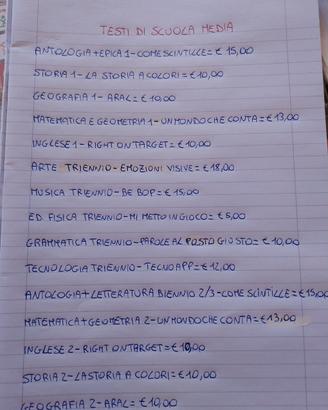 TESTI DI SCUOLA MEDIA
ANTOLOGIA+EPICA 1-COME SCINTILLE= € 15,00
STORIA 1-LA STORIA A COLORI= € 10,00
GEOGRAFIA 1-ARAL= € 10,00
MATEMATICA E GEOMETRIA 1-UN MONDO CHE CONTA= € 13,00
INGLESE 1-RIGHT ON TARGET= € 10,00
ARTE TRIENNIO-EMOZIONI VISIVE= € 18,00
MUSICA TRIENNIO-BE BOP= € 15,00
ED. FISICA TRIENNIO-MI METTO IN GIOCO= € 5,00
GRAMMATICA TRIENNIO-PAROLE AL POSTO GIUSTO= € 10,00
TECNOLOGIA TRIENNIO-TECNOAPP= € 12,00
ANTOLOGIA+LETTERATURA BIENNIO 2/3-COME SCINTILLE= € 15,00
MATEMATICA+GEOMETRIA 2-UN MONDO CHE CONTA= € 13,00
INGLESE 2-RIGHT ON TARGET= € 10,00
STORIA 2-LA STORIA A COLORI= € 10,00
GEOGRAFIA 2-ARAL= € 10,00